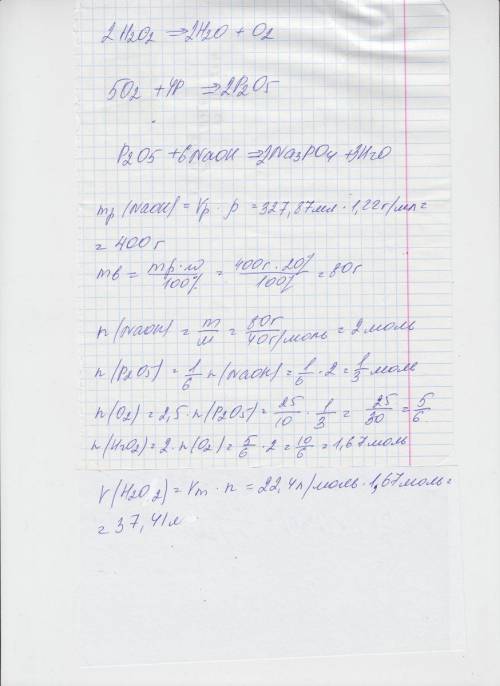 2H2O2 ⇒ 2H2O + O2
5O2 + 4P ⇒ 2P2O5
P2O5 + 6NaOH ⇒ 2Na3PO4 + 3H2O
mр(NaOH) = Vр · ρ = 327,87мл · 1,22г/мл =
= 400г
mв = mр·ω/100% = 400г · 20%/100% = 80г
n(NaOH) = m/M = 80г/40г/моль = 2моль
n(P2O5) = 1/6 n(NaOH) = 1/6 · 2 = 1/3 моль
n(O2) = 2,5 · n(P2O5) = 25/10 · 1/3 = 25/30 = 5/6
n(H2O2) = 2 · n(O2) = 5/6 · 2 = 10/6 = 1,67моль
V(H2O2) = Vm · n = 22,4л/моль · 1,67моль =
= 37,41л